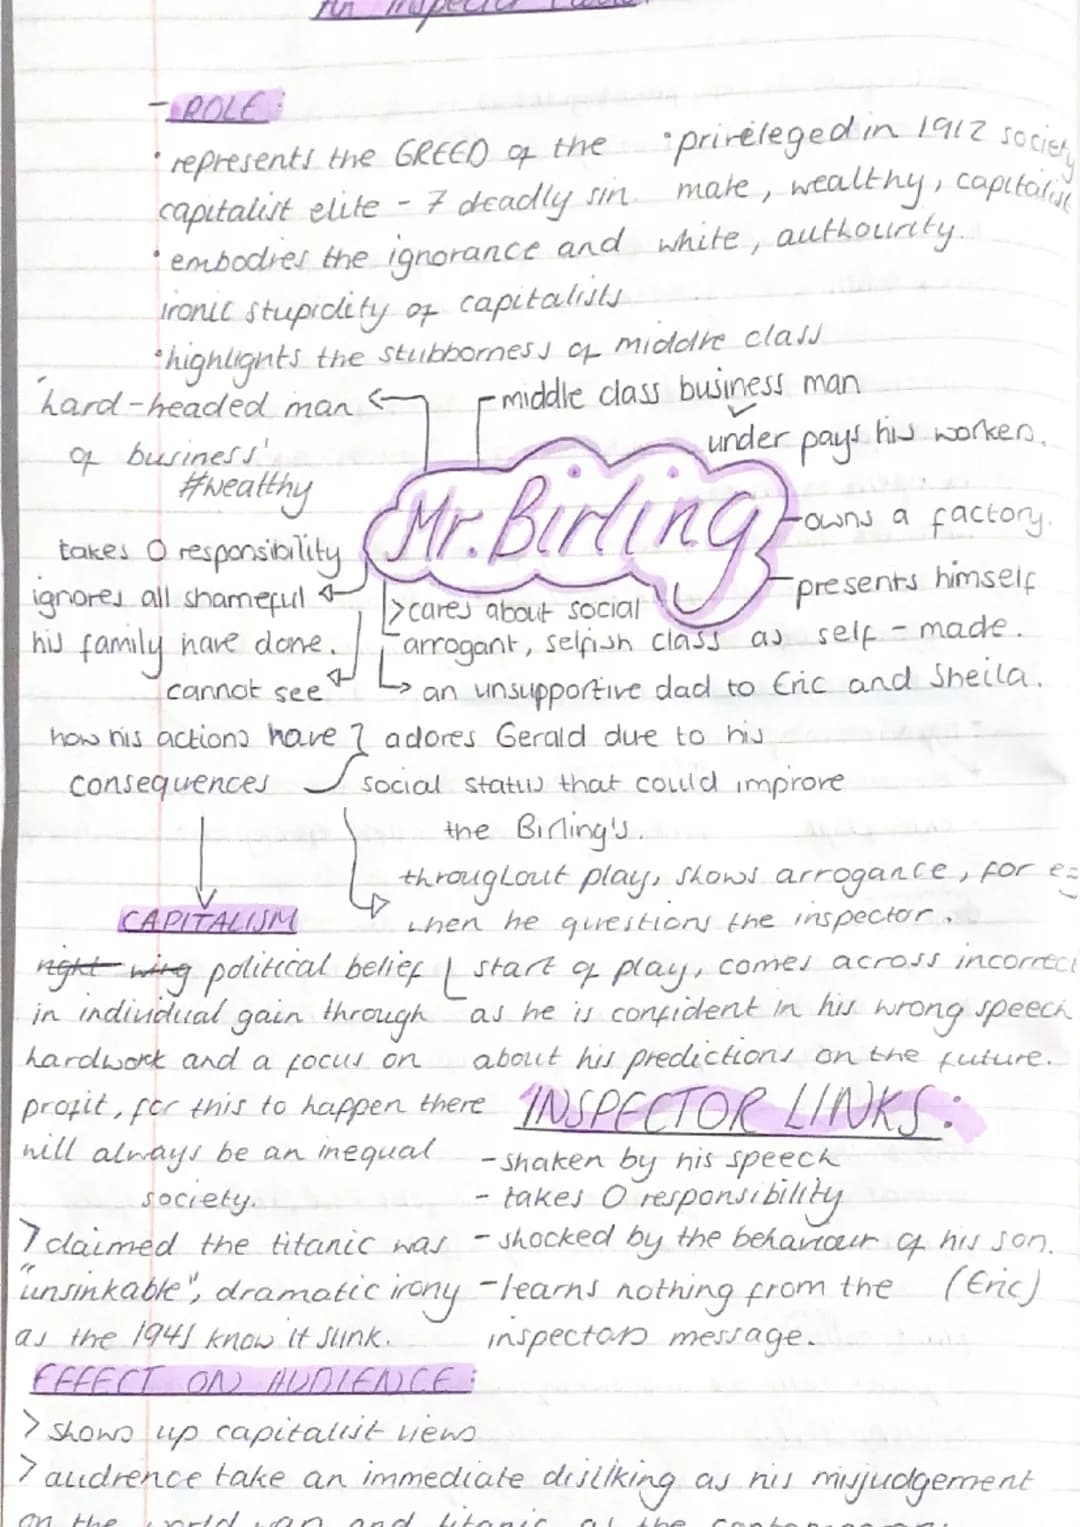 An Inspector Calls
- ROLE:
• represents the GREED of the
capitalist elite - 7 deadly sin.
• embodies the ignorance and
ironic stupidity of capitalists
• highlights the stubborness of middle class
• privileged in 1912 society
male, wealthy, capitalist
white, authourity.
'hard-headed man
of business'
#wealthy
- middle class business man
under pays his workers.
Mr. Birling
- owns a factory.
- presents himself
as self-made.
takes 0 responsibility
ignores all shameful
his family have done.
> cares about social
class
arrogant, selfish
↳ an unsupportive dad to Eric and Sheila.
cannot see
how his actions have
consequences
adores Gerald due to his
social status that could improve
the Birling's.
throughout play, shows arrogance, for eg
when he questions the inspector.
CAPITALISM
right wing political belief
in individual gain through
hardwork and a focus on
profit, for this to happen there
will always be an inequal
society.
start of play, comes across incorrect
as he is confident in his wrong speech
about his predictions on the future.
INSPECTOR LINKS:
- shaken by his speech
- takes 0 responsibility
- shocked by the behaviour of his son.
(Eric)
- learns nothing from the
inspectors message.
> claimed the titanic was
"unsinkable", dramatic irony
as the 1941 know it sunk.
EFFECT ON AUDIENCE:
> shows up capitalist views
> audience take an immediate disliking as his misjudgement
on the world war and titanic as the